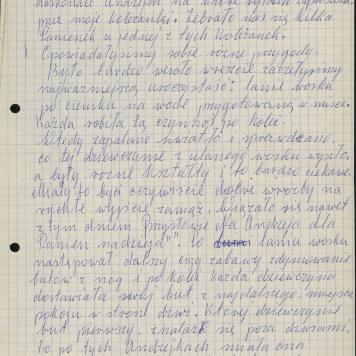 doskonale andrzejki na które byłam zaproszona
przez moje koleżanki. Zebrało nas się kilka
panienek u jednej z tych koleżanek.
Opowiadałyśmy sobie różne przygody.
Było bardzo wesoło wreszcie zaczęłyśmy
najważniejszą uroczystość: lanie wosku
po ciemku na wodę przygotowaną w misce.
Każda robiła tą czynność po kolei.
Wtedy zapalano światło i sprawdzano,
co tej dziewczynie z ulanego wosku wyszło,
a były różne kształty i to bardzo ciekawe.
Miały to być oczywiście dobre wróżby na
rychłe wyjście zamąż. Wiązało się nawet
z tym dniem Przysłowie "Na Andrzeja dla
Panien nadzieja" to laniu wosku
następował dalszy ciąg zabawy zdejmowanie
butów z nóg i po kolei każda dziewczyna
dostawiała swój but z najdalszego miejsca
pokoju w stronę drzwi. której dziewczynie
but pierwszy znalazł się poza drzwiami,
to po tych Andrzejkach miała ona